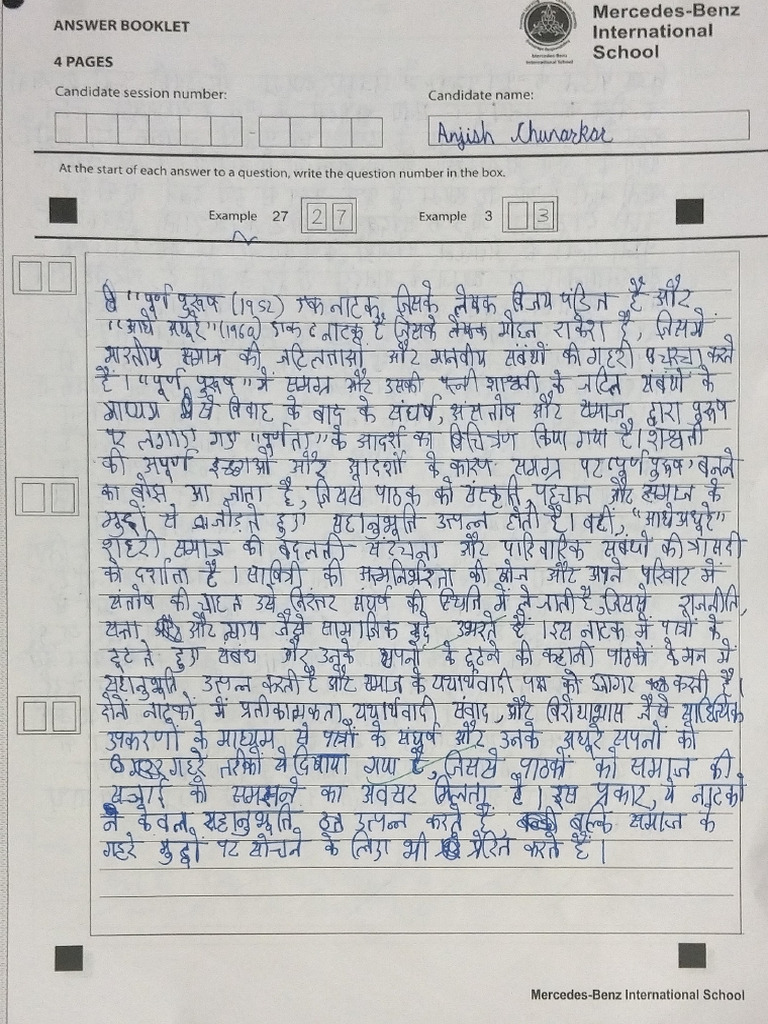 ANSWER BOOKLET
4 PAGES
Mercedes-Benz
International
School
Mercedes-Benz
International School
Candidate session number:
Candidate name:
-
Anjish Chunarkar
At the start of each answer to a question, write the question number in the box.
Example 27 2 7 Example 3 3
"पूर्ण पुरूष" (1952) एक नाटक जिसके लेखक विजय पंडित है और
"आधे अधूरे" (1969) एक नाटक है जिसके लेखक मोहन राकेश है, जिसमें
भारतीय समाज की जटिलताओं और मानवीय संबंधों की गहरी चर्चा करते
है। "पूर्ण पुरूष" में समग्र और उसकी पत्नी शाश्वती के जटिल संबंधों के
माध्यम से विवाह के बाद के संघर्ष, असंतोष और समाज द्वारा पुरूष
पर लगाए गए "पूर्णता" के आदर्श का चित्रण किया गया है। शाश्वती
की अपूर्ण इच्छाओं और आदर्शों के कारण समग्र पर "पूर्ण पुरूष" बनने
का बोझ आ जाता है, जिससे पाठक को संस्कृति, पहचान और समाज के
मुद्दों से जोड़ते हुए सहानुभूति उत्पन्न होती है। वहीं, "आधे अधूरे"
शहरी समाज की बदलती संरचना और पारिवारिक संबंधों की त्रासदी
को दर्शाता है। सावित्री की आत्मनिर्भरता की खोज और अपने परिवार में
संतोष की चाहत उसे निरंतर संघर्ष की स्थिति में ले जाती है, जिससे राजनीति,
सत्ता और न्याय जैसे सामाजिक मुद्दे उभरते हैं। इस नाटक में पात्रों के
टूटते हुए संबंध और उनके सपनों के टूटने की कहानी पाठकों के मन में
सहानुभूति उत्पन्न करती है और समाज के यथार्थवादी पक्ष को उजागर करती है।
दोनों नाटकों में प्रतीकात्मकता, यथार्थवादी संवाद, और विरोधाभास जैसे साहित्यिक
उपकरणों के माध्यम से पात्रों के संघर्ष और उनके अधूरे सपनों को
गहरे तरीके से दिखाया गया है, जिससे पाठकों को समाज की
सच्चाई को समझने का अवसर मिलता है। इस प्रकार, ये नाटकों
न केवल सहानुभूति उत्पन्न करते हैं बल्कि समाज के
गहरे मुद्दों पर सोचने के लिए भी प्रेरित करते हैं।
Mercedes-Benz International School